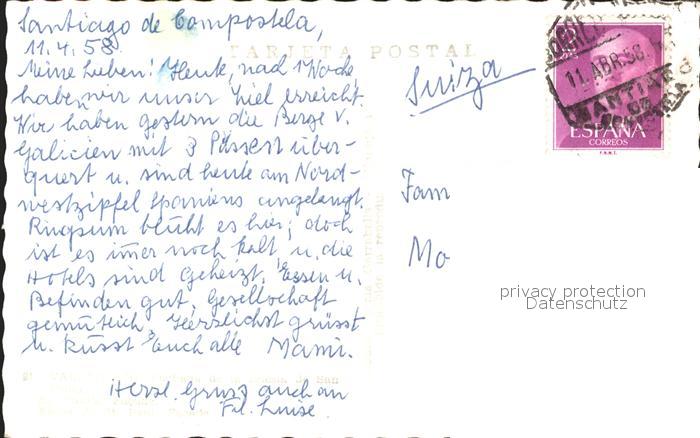 Santiago de Compostela,
11.4.58.
TARJETA POSTAL
Meine Lieben! Heute, nach 1 Woche
haben wir unser Ziel erreicht.
Wir haben gestern die Berge v.
Galicien mit 3 Pässen über-
quert u. sind heute am Nord-
westzipfel Spaniens angelangt.
Ringsum blüht es hier, doch
ist es imer noch kalt u. die
Hotels sind geheizt. Essen u.
Befinden gut, Gesellschaft
gemütlich. Herzlichst grüsst
u. küsst Euch alle Mami.
Herzl. Gruss auch an
Frl. Luise.
Suiza
Fam
Mo
11 ABR 58
SANTIAGO
ESPAÑA
CORREOS
F.N.M.T.
privacy protection
Datenschutz